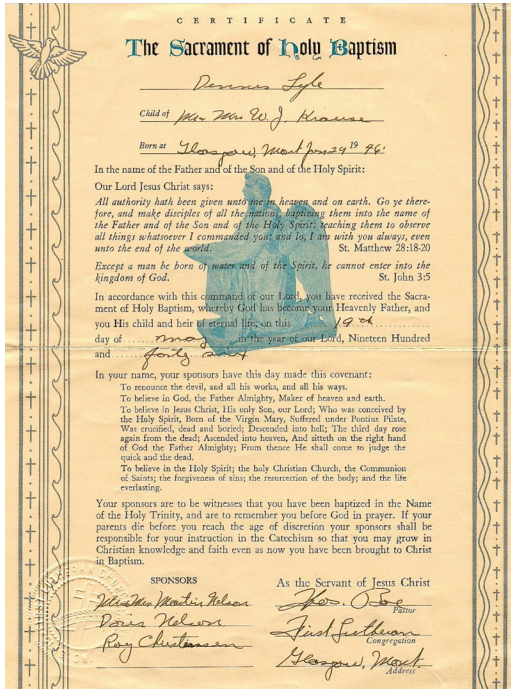 CERTIFICATE
The Sacrament of Holy Baptism
Dennis Lyle
Child of Mr Mrs W. J. Krause
Born at Glasgow, Mont Jan 29 19 46
In the name of the Father and of the Son and of the Holy Spirit:
Our Lord Jesus Christ says:
All authority hath been given unto me in heaven and on earth. Go ye there-
fore, and make disciples of all the nations, baptizing them into the name of
the Father and of the Son and of the Holy Spirit: teaching them to observe
all things whatsoever I commanded you: and lo, I am with you always, even
unto the end of the world. St. Matthew 28:18-20
Except a man be born of water and of the Spirit, he cannot enter into the
kingdom of God. St. John 3:5
In accordance with this command of our Lord, you have received the Sacra-
ment of Holy Baptism, whereby God has become your Heavenly Father, and
you His child and heir of eternal life, on this 19th
day of May in the year of our Lord, Nineteen Hundred
and forty six
In your name, your sponsors have this day made this covenant:
To renounce the devil, and all his works, and all his ways.
To believe in God, the Father Almighty, Maker of heaven and earth.
To believe in Jesus Christ, His only Son, our Lord; Who was conceived by
the Holy Spirit, Born of the Virgin Mary, Suffered under Pontius Pilate,
Was crucified, dead and buried; Descended into hell; The third day rose
again from the dead; Ascended into heaven, And sitteth on the right hand
of God the Father Almighty; From thence He shall come to judge the
quick and the dead.
To believe in the Holy Spirit; the holy Christian Church, the Communion
of Saints; the forgiveness of sins; the resurrection of the body; and the life
everlasting.
Your sponsors are to be witnesses that you have been baptized in the Name
of the Holy Trinity, and are to remember you before God in prayer. If your
parents die before you reach the age of discretion your sponsors shall be
responsible for your instruction in the Catechism so that you may grow in
Christian knowledge and faith even as now you have been brought to Christ
in Baptism.
SPONSORS
Mr & Mrs Martin Nelson
Doris Nelson
Roy Christensen
As the Servant of Jesus Christ
Thos. Boe
Pastor
First Lutheran
Congregation
Glasgow, Mont.
Address